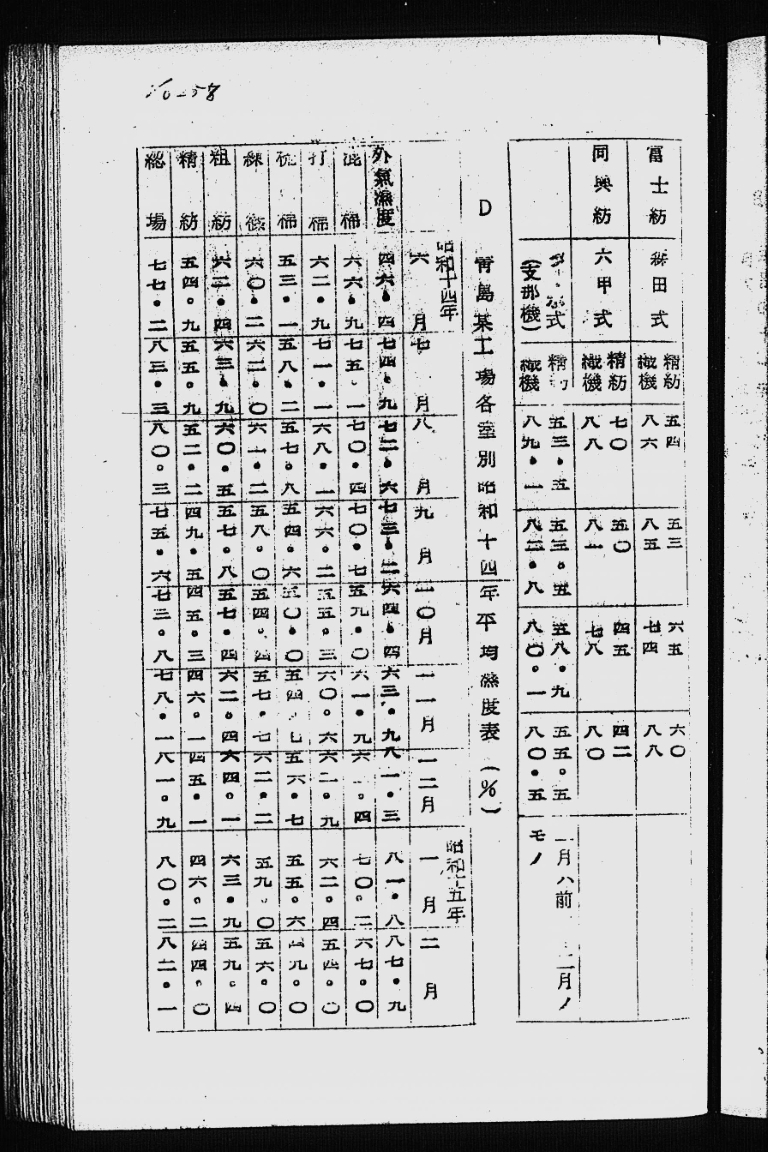 富士紡 式 精紡 五四 五三 六五 六〇
織機 八六 八五 七四 八八
同興紡 六甲式 精紡 七〇 五〇 四五 四二
織機 八八 八一 七八 八〇
式 精 五三・五 五三。五 五八・九 五五。五 一月ハ前 二月ノ
(支那機) 織機 八九・一 八二・八 八〇・一 八〇・五 モノ
D 青島某工場各室別昭和十四年平均濕度表(%)
昭和十四年 昭和十五年
六月 七月 八月 九月 一〇月 一一月 一二月 一月 二月
外氣濕度 四六・四 七四・九 七二・六 七三・二 六四・四 六三・九 八一・三 八一・八 八七・九
混棉 六六・九 七五・一 七〇・四 七〇・七 五九・〇 六一・九 七〇。二 六七・〇
打棉 六二・九 七一・一 六八・一 六六・二 五五。三 六〇。六 六二・九 六二・四 五四・〇
梳棉 五三・一 五八・二 五七。八 五四。六 五〇・〇 五四 五六・七 五五。六 四九。〇
練 六〇・二 六二・〇 六一・二 五八。〇 五四。四 五七・七 六二・二 五九・〇 五六・〇
粗紡 六二・四 六三・九 六〇・五 五七。八 五七・四 六二・四 六四。一 六三・九 五九。四
精紡 五四。九 五五。九 五二・二 四九。五 四五。三 四六。一 四五。一 四六。二 四四。〇
總場 七七・二 八三・三 八〇。三 七五・六 七三・八 七八・一 八一。九 八〇。二 八二・一